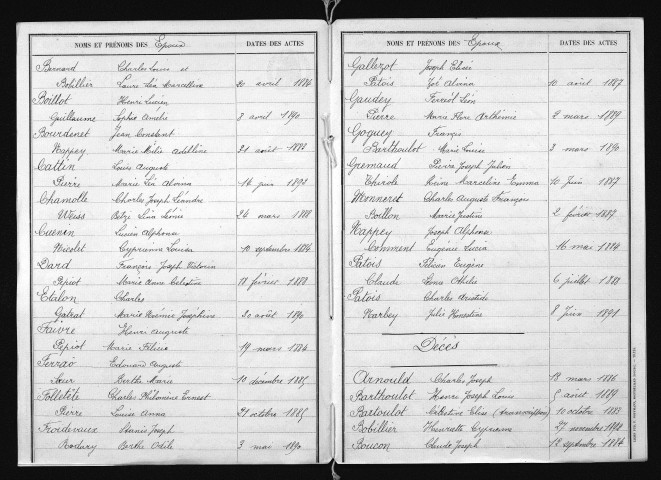 NOMS ET PRÉNOMS DES Époux DATES DES ACTES
Bernard Charles Louis et
Bobillier Laure Léa Marcelline 20 avril 1884
Boillot Henri Lucien
Guillaume Sophie Amélie 8 avril 1890
Bourdenet Jean Constant
Nappey Marie Adelline 21 août 1888
Cattin Louis Auguste
Pierre Marie Léa Alvina 14 juin 1892
Chamolle Charles Joseph Léandre
Weiss Léonie 24 mars 1888
Cuenin Lucien Alphonse
Nicolet Cyprienne Louisa 10 septembre 1884
Dard François Joseph Victorin
Pepiot Marie Anne Célestine 18 février 1888
Etalon Charles
Marie Noémie Joséphine 20 août 1890
Faivre Henri Auguste
Pepiot Marie Félicie 19 mars 1884
Edouard Auguste
Sœur Berthe Marie 10 décembre 1885
Folletête Charles Philomène Ernest
Pierre Louise Anna 21 octobre 1885
Froidevaux Stanis Joseph
Berthe Odile 3 mai 1890
NOMS ET PRÉNOMS DES Époux DATES DES ACTES
Gallezot Joseph Elisée
Patois Zoé Alvina 10 août 1887
Gaudey Ferréol Léon
Pierre Marie Flore Arthémise 2 mars 1889
Goguey Francis
Barthoulot Marie Lucine 3 mars 1890
Gremaud Pierre Joseph Julien
Reine Marceline Emma 10 Juin 1887
Monneret Charles Auguste François
Boillon Marie Justine 2 février 1887
Nappey Joseph Alphonse
Comment Eugénie Lucia 16 mai 1884
Patois Félicien Eugène
Claude Othilie 6 juillet 1888
Patois Charles Aristide
Marbey Julie Honorine 8 Juin 1891
Décès
Arnould Charles Joseph 18 mars 1886
Barthoulot Joseph Louis 5 août 1889
Barloulot Célestine Elise (transcription) 10 octobre 1883
Bobillier Henriette Cyprienne 27 novembre
Boucon Claude Joseph 12 septembre 1884